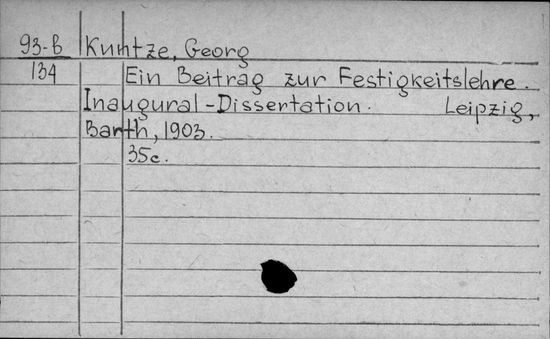 93-B Kuntze, Georg
134 Ein Beitrag zur Festigkeitslehre.
Inaugural-Dissertation. Leipzig,
Barth, 1903.
35c.